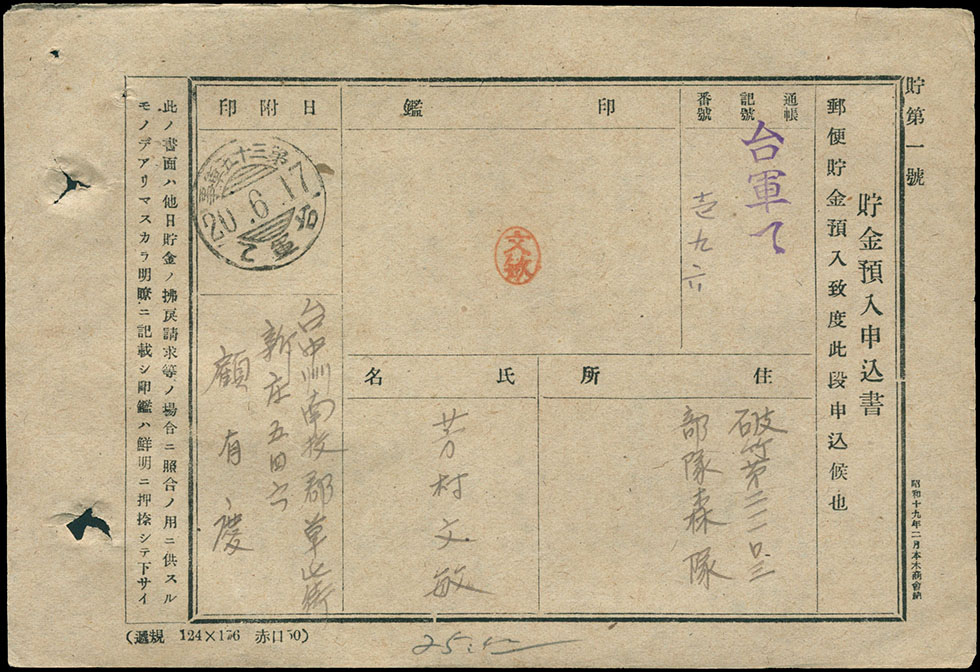 貯第一號
貯金預入申込書
昭和十九年二月本木商會納
郵便貯金預入致度此段申込候也
通帳
記號
番號
台軍て
壱九六
印鑑
文敏
日附印
第三十五野
20.6.17
台軍
住所
破竹第二二一
部隊森隊
氏名
芳村文敏
台中州南投郡草屯街
新庄五四六
顧有慶
此ノ書面ハ他日貯金ノ拂戻請求等ノ場合ニ照合ノ用ニ供スル
モノデアリマスカラ明瞭ニ記載シ印鑑ハ鮮明ニ押捺シテ下サイ
(遞規 124×176 赤口50)